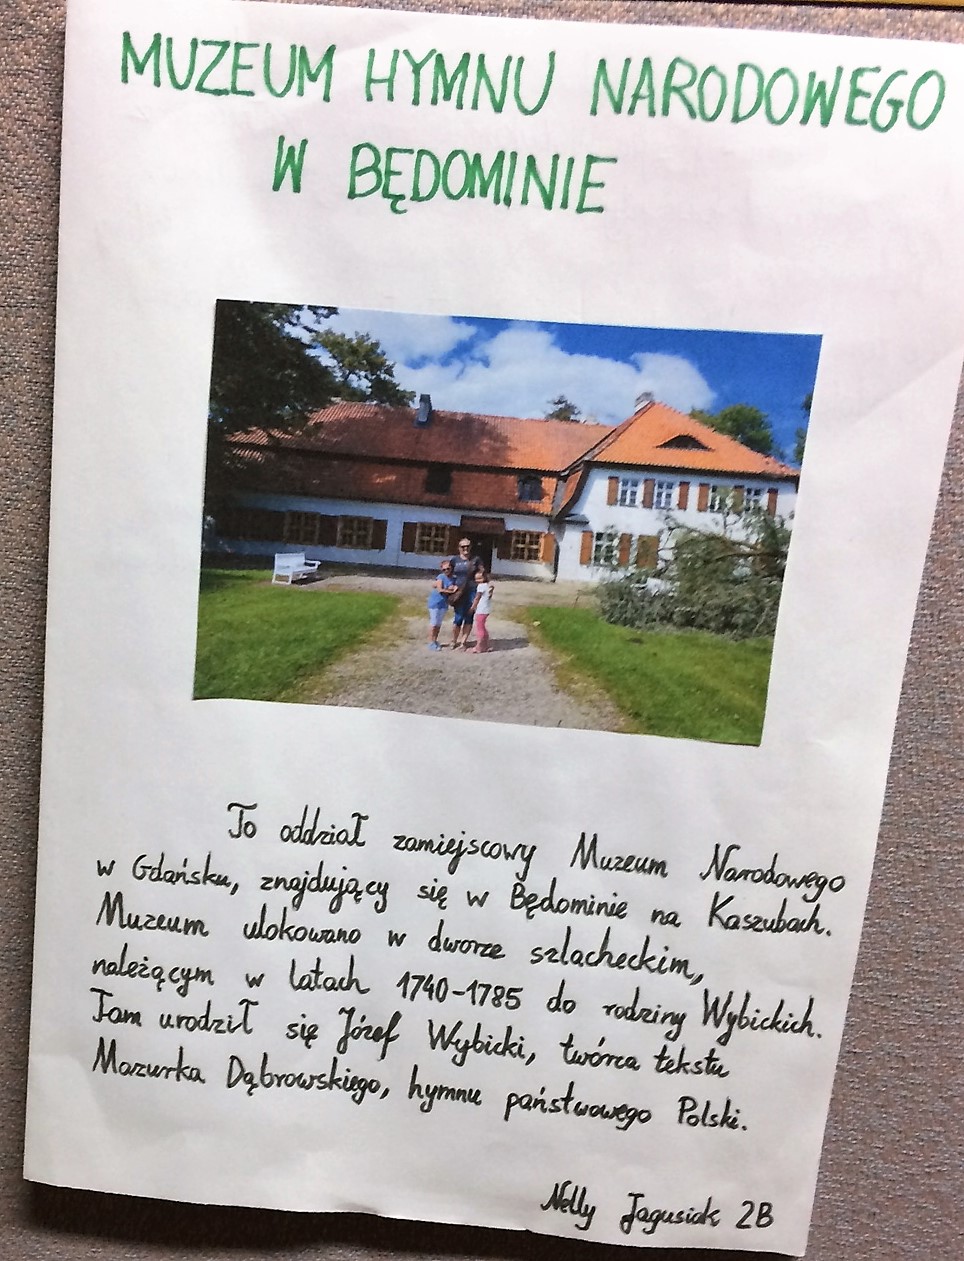 MUZEUM HYMNU NARODOWEGO
W BĘDOMINIE
To oddział zamiejscowy Muzeum Narodowego
w Gdańsku, znajdujący się w Będominie na Kaszubach.
Muzeum ulokowano w dworze szlacheckim,
należącym w latach 1740-1785 do rodziny Wybickich.
Tam urodził się Józef Wybicki, twórca tekstu
Mazurka Dąbrowskiego, hymnu państwowego Polski.
Nelly Jagusiak 2B